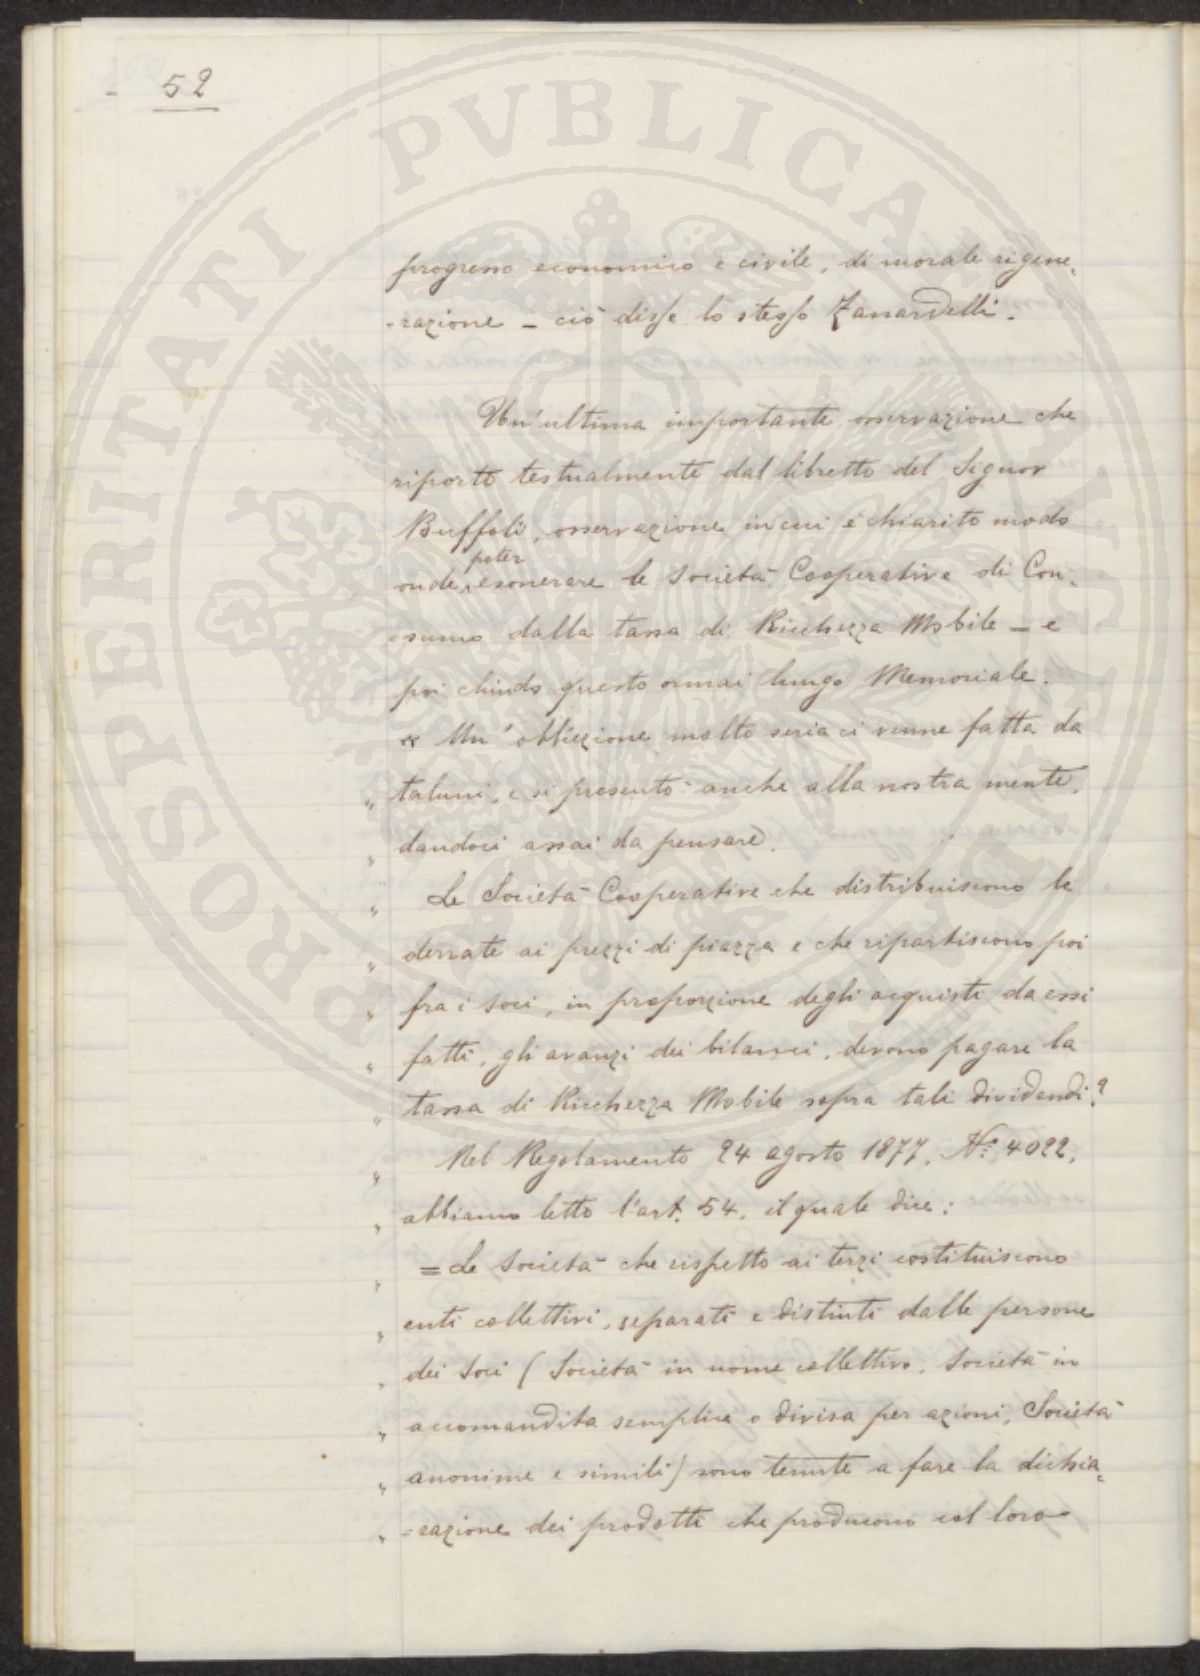 52
progresso economico e civile, di morale rigene-
-razione - ciò disse lo stesso Zanardelli.
Un'ultima importante osservazione che
riporto testualmente dal libretto del Signor
Buffoli, osservazione in cui è chiarito modo
onde poter esonerare le Società Cooperative di Con-
-sumo dalla tassa di Ricchezza Mobile - e
poi chiudo questo ormai lungo Memoriale.
« Un'obbiezione molto seria ci venne fatta da
" taluni, e si presentò anche alla nostra mente,
" dandoci assai da pensare.
" Le Società Cooperative che distribuiscono le
" derrate ai prezzi di piazza e che ripartiscono poi
" fra i soci, in proporzione degli acquisti da essi
" fatti, gli avanzi dei bilanci, devono pagare la
" tassa di Ricchezza Mobile sopra tali dividendi?
" Nel Regolamento 24 agosto 1877, N.° 4022,
" abbiamo letto l'art. 54, il quale dice:
" = Le Società che rispetto ai terzi costituiscono
" enti collettivi, separati e distinti dalle persone
" dei Soci (Società in nome collettivo, Società in
" accomandita semplice o divisa per azioni, Società
" anonime e simili) sono tenute a fare la dichia-
" -razione dei prodotti che producono col loro
PROSPERITATI PVBLICAE